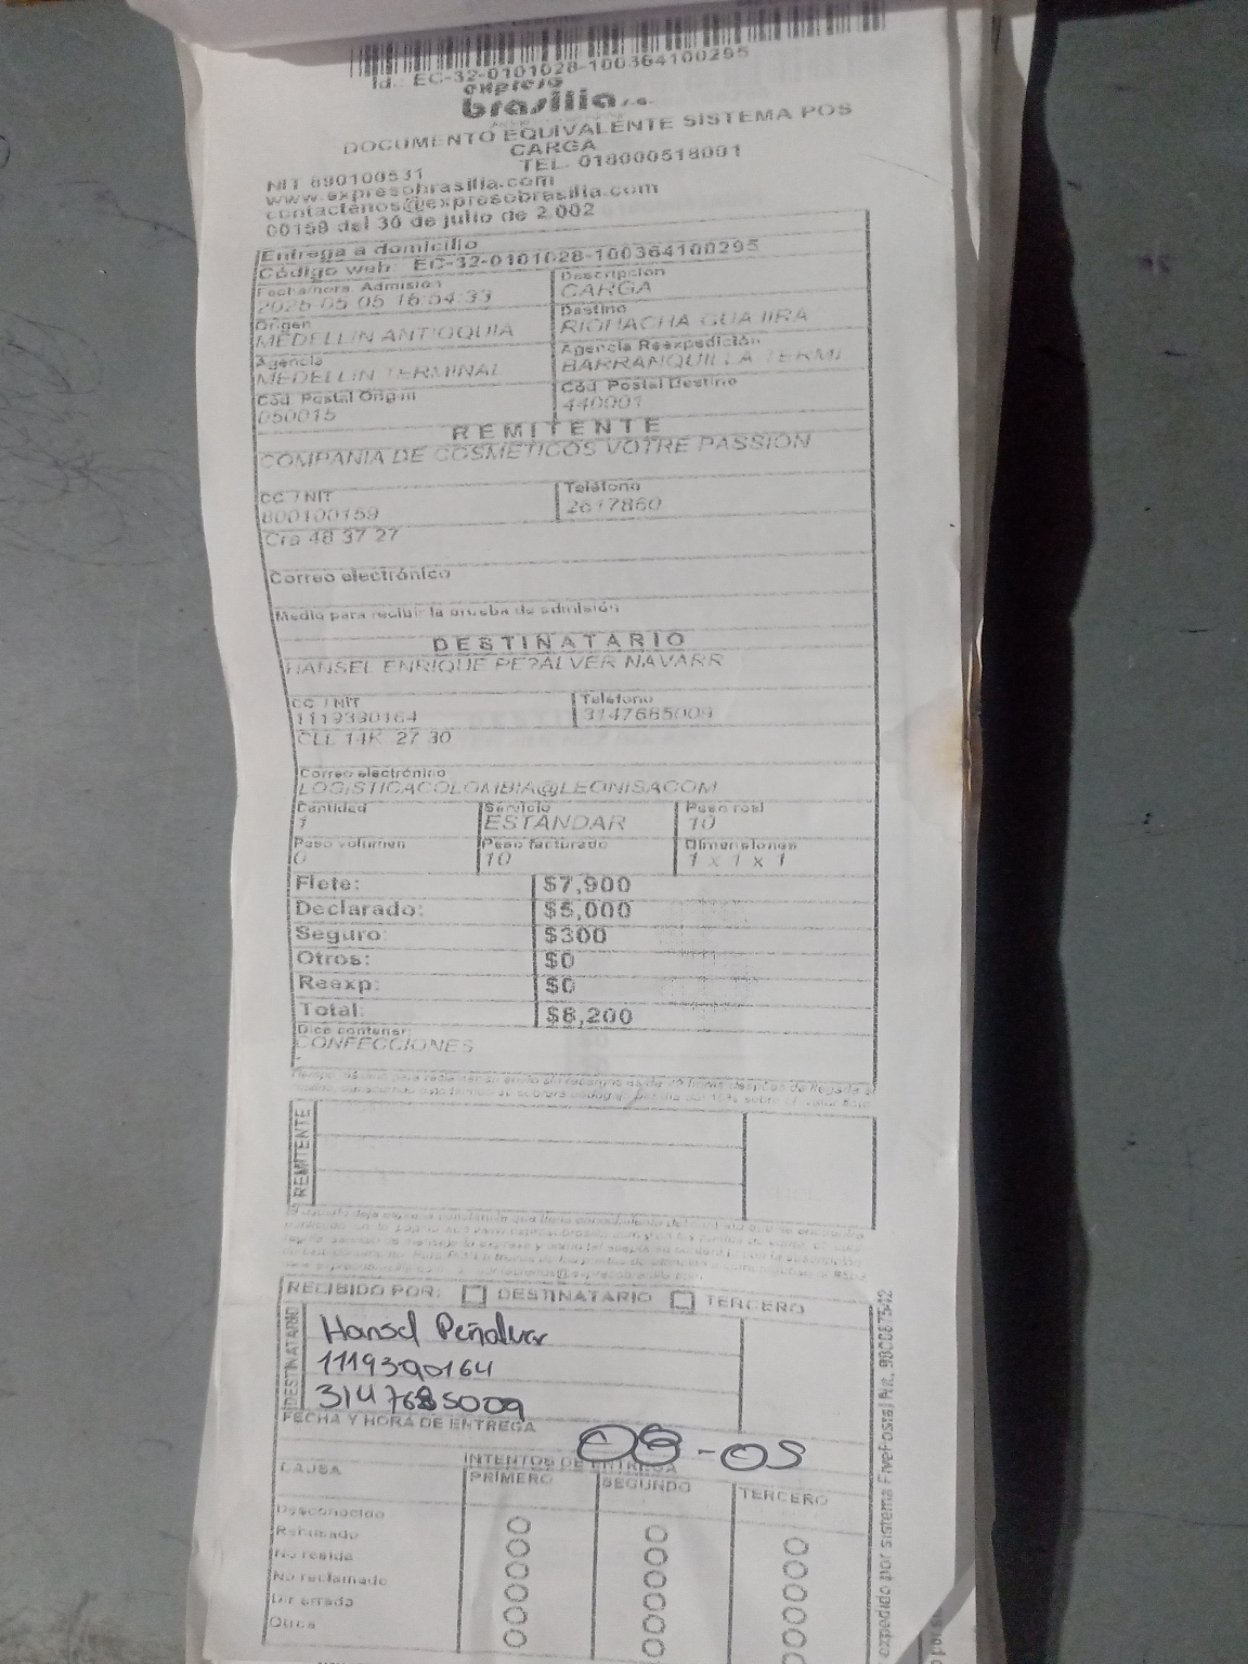 Id.: EC-32-0101028-100364100295
expreso
brasilia s.a.
DOCUMENTO EQUIVALENTE SISTEMA POS
CARGA
TEL. 018000518001
NIT 890100531
www.expresobrasilia.com
contactenos@expresobrasilia.com
00159 del 30 de julio de 2.002
Entrega a domicilio
Código web: EC-32-0101028-100364100295
Fecha/hora. Admisión Descripción
16:54:33 CARGA
Origen Destino
MEDELLIN ANTIOQUIA RIOHACHA GUAJIRA
Agencia Agencia Reexpedición
MEDELLIN TERMINAL BARRANQUILLA TERMI
Cód. Postal Origen Cód. Postal Destino
050015 440001
REMITENTE
COMPANIA DE COSMETICOS VOTRE PASSION
CC / NIT Teléfono
800100159 2617860
Cra 48 37 27
Correo electrónico
Medio para recibir la prueba de admisión
DESTINATARIO
HANSEL ENRIQUE PE?ALVER NAVARR
CC / NIT Teléfono
1119390164 3147685009
CLL 14K 27 30
Correo electrónico
LOGISTICACOLOMBIA@LEONISACOM
Cantidad Servicio Peso real
1 ESTANDAR 10
Peso volumen Peso facturado Dimensiones
0 10 1 x 1 x 1
Flete: $7,900
Declarado: $5,000
Seguro: $300
Otros: $0
Reexp: $0
Total: $8,200
Dice contener:
CONFECCIONES
REMITENTE
RECIBIDO POR: DESTINATARIO TERCERO
DESTINATARIO
Hansel Peñalver
1119390164
3147685009
FECHA Y HORA DE ENTREGA
08-05
INTENTOS DE ENTREGA
CAUSA PRIMERO SEGUNDO TERCERO
Desconocido
Rehusado
No reside
No reclamado
Dir errada
Otros
expedido por sistema FivePostal Nit.